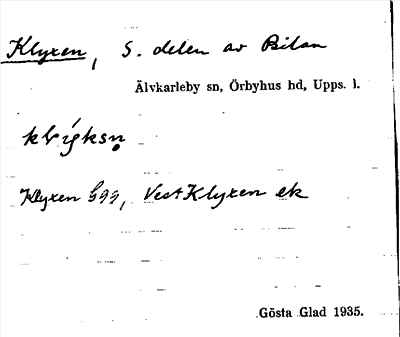 Klyxen, S. delen av Bilan
Älvkarleby sn, Örbyhus hd, Upps. l.
Klyxen Ggg, VestKlyxen ek
Gösta Glad 1935.